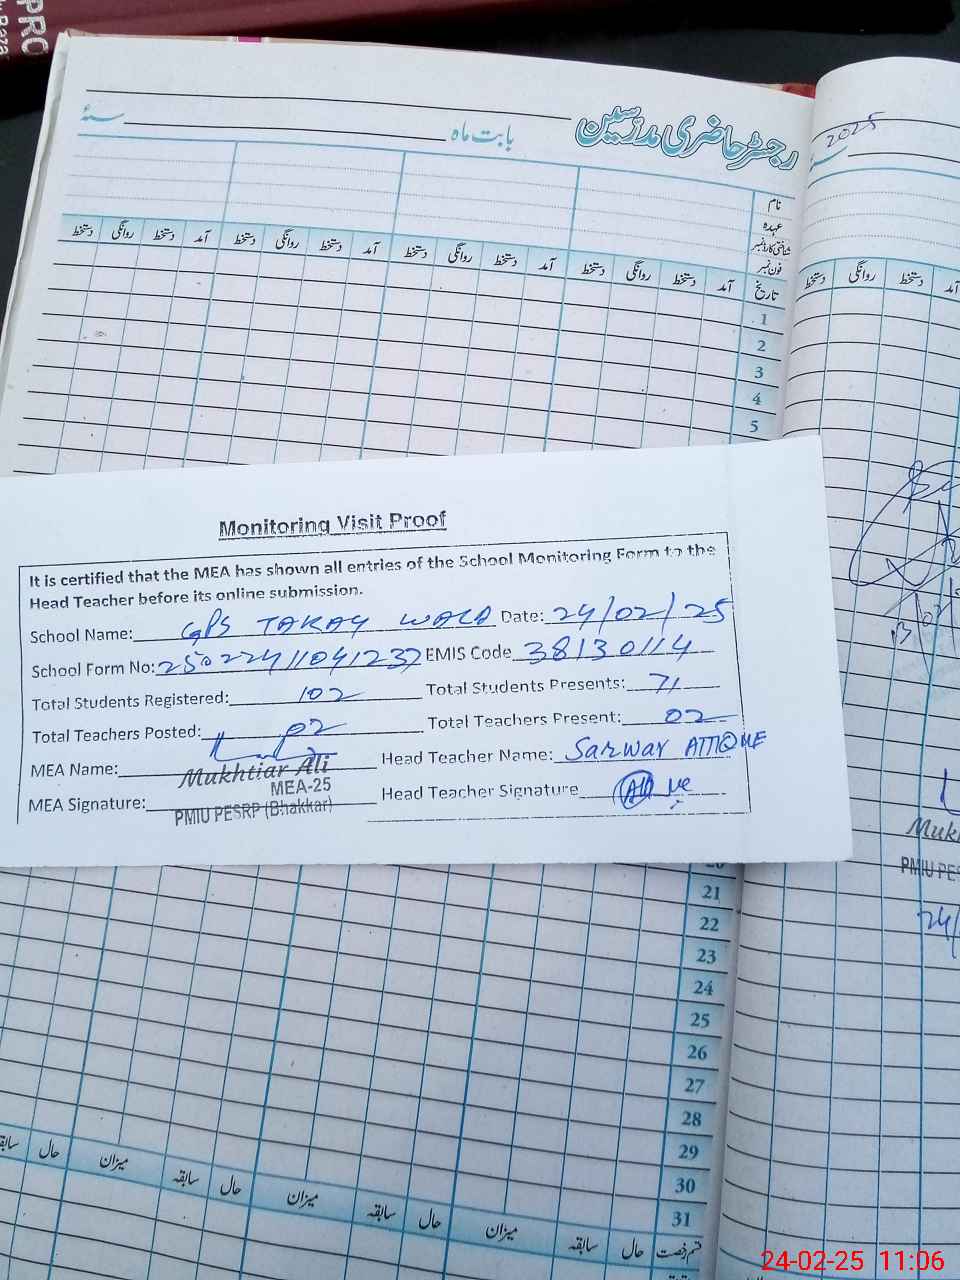 PRO
رجسٹر حاضری مدرسین
بابت ماہ
سنہ
2025
نام
عہدہ
شناختی کارڈ نمبر
فون نمبر
تاریخ آمد دستخط روانگی دستخط آمد دستخط روانگی دستخط آمد دستخط روانگی دستخط آمد دستخط روانگی دستخط
آمد دستخط روانگی دستخط
1
2
3
4
5
Monitoring Visit Proof
It is certified that the MEA has shown all entries of the School Monitoring Form to the
Head Teacher before its online submission.
School Name: GPS TAKAY WALA Date: 24/02/25
School Form No: 25022411041237 EMIS Code 38130114
Total Students Registered: 102 Total Students Presents: 71
Total Teachers Posted: 02 Total Teachers Present: 02
MEA Name: Mukhtiar Ali Head Teacher Name: Sarwar ATTIQUE
MEA-25
MEA Signature: Head Teacher Signature
PMIU PESRP (Bhakkar)
Mukh
PMIU PES
24/
20
21
22
23
24
25
26
27
28
29
30
31
قسم رخصت حال سابقہ میزان حال سابقہ میزان حال سابقہ میزان حال سابقہ
24-02-25 11:06